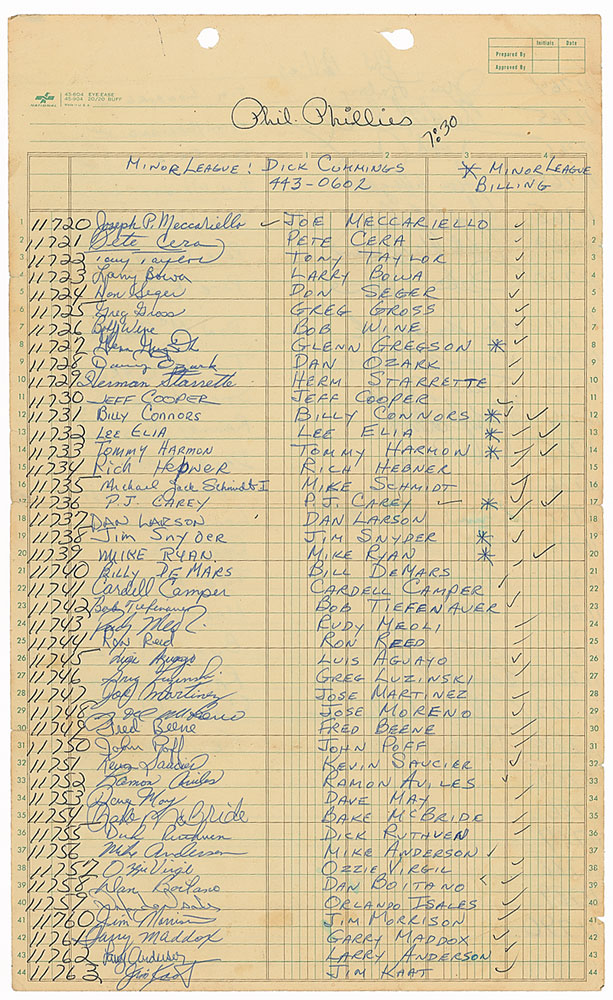 Initials Date
Prepared By
Approved By
NATIONAL
45-604 EYE-EASE
45-904 20/20 BUFF
Phil. Phillies 7:30
1 2 3 4
MINOR LEAGUE! DICK CUMMINGS
443-0602
* MINOR LEAGUE
BILLING
1 11720 Joseph P. Meccariello ✓ JOE MECCARIELLO ✓ 1
2 11721 Pete Cera PETE CERA – ✓ 2
3 11722 Tony Taylor TONY TAYLOR ✓ 3
4 11723 Larry Bowa LARRY BOWA ✓ 4
5 11724 Don Seger DON SEGER ✓ 5
6 11725 Greg Gross GREG GROSS ✓ 6
7 11726 Bob Wine BOB WINE ✓ 7
8 11727 GLENN GREGSON * ✓ 8
9 11728 Danny Ozark DAN OZARK ✓ 9
10 11729 Herman Starrette HERM STARRETTE ✓ 10
11 11730 JEFF COOPER JEFF COOPER ✓ 11
12 11731 BILLY CONNORS BILLY CONNORS * ✓ ✓ 12
13 11732 LEE ELIA LEE ELIA * ✓ ✓ 13
14 11733 TOMMY HARMON TOMMY HARMON * ✓ ✓ 14
15 11734 Rich Hebner RICH HEBNER ✓ 15
16 11735 Michael Jack Schmidt I MIKE SCHMIDT ✓ 16
17 11736 P.J. CAREY P.J. CAREY – * ✓ ✓ 17
18 11737 DAN LARSON DAN LARSON ✓ 18
19 11738 Jim Snyder JIM SNYDER * ✓ 19
20 11739 MIKE RYAN. MIKE RYAN * ✓ 20
21 11740 BILLY DE MARS BILL DEMARS ✓ 21
22 11741 Cardell Camper CARDELL CAMPER ✓ 22
23 11742 Bob Tiefenauer BOB TIEFENAUER ✓ 23
24 11743 Rudy Meoli RUDY MEOLI ✓ 24
25 11744 Ron Reed RON REED ✓ 25
26 11745 Luis Aguayo LUIS AGUAYO ✓ 26
27 11746 Greg Luzinski GREG LUZINSKI ✓ 27
28 11747 Jose Martinez JOSE MARTINEZ ✓ 28
29 11748 Jose Moreno JOSE MORENO ✓ 29
30 11749 Fred Beene FRED BEENE ✓ 30
31 11750 John Poff JOHN POFF ✓ 31
32 11751 Kevin Saucier KEVIN SAUCIER ✓ 32
33 11752 Ramon Aviles RAMON AVILES ✓ 33
34 11753 Dave May DAVE MAY ✓ 34
35 11754 Bake McBride BAKE MCBRIDE ✓ 35
36 11755 Dick Ruthven DICK RUTHVEN ✓ 36
37 11756 Mike Anderson MIKE ANDERSON ✓ 37
38 11757 Ozzie Virgil OZZIE VIRGIL ✓ 38
39 11758 Dan Boitano DAN BOITANO ✓ 39
40 11759 ORLANDO ISALES ✓ 40
41 11760 Jim Morrison JIM MORRISON ✓ 41
42 11761 Garry Maddox GARRY MADDOX ✓ 42
43 11762 Larry Anderson LARRY ANDERSON ✓ 43
44 11763 Jim Kaat JIM KAAT ✓ 44